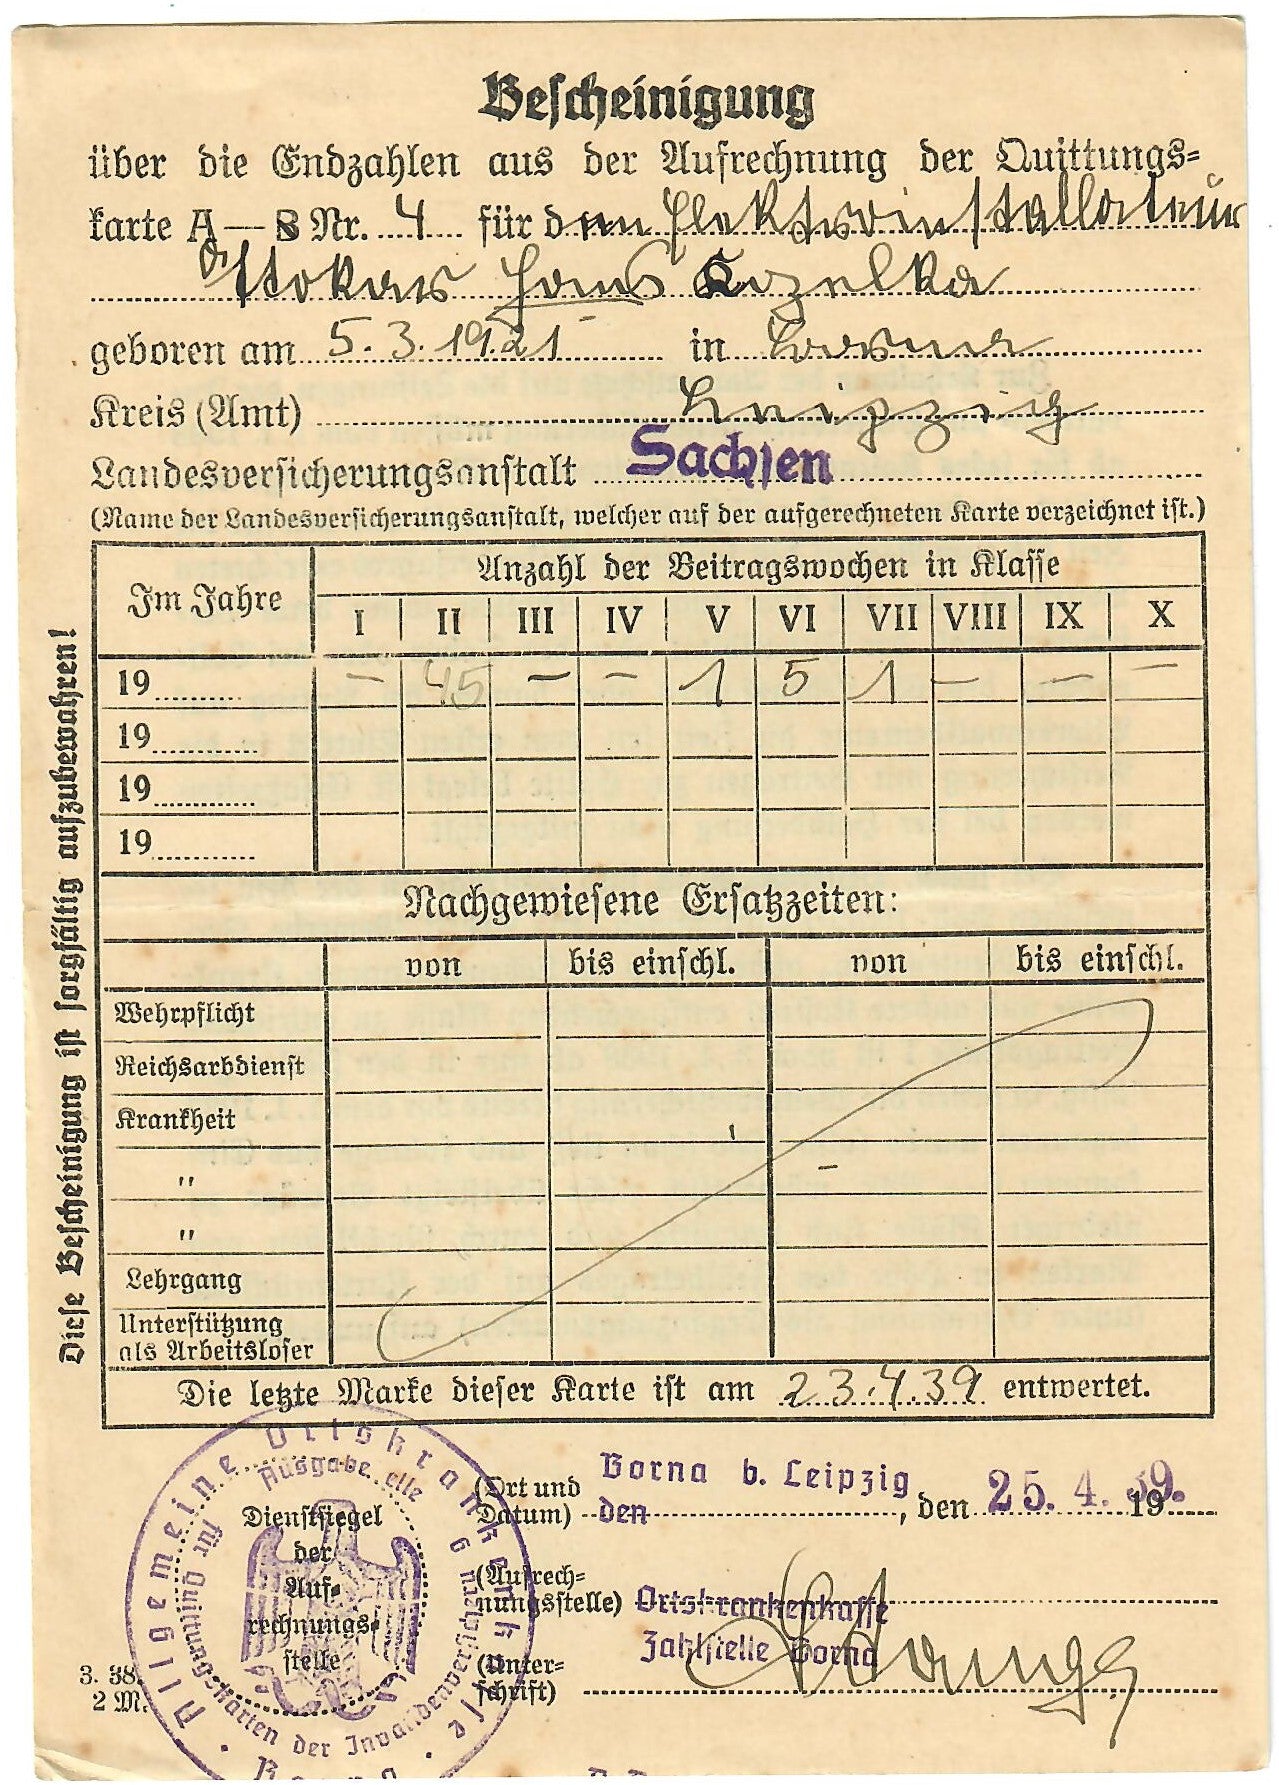 Bescheinigung
über die Endzahlen aus der Aufrechnung der Quittungs-
karte A—B Nr. 4 für den Elektroinstallateur
Ottokar Hans Kozelka
geboren am 5.3.1921 in Borna
Kreis (Amt) Leipzig
Landesversicherungsanstalt Sachsen
(Name der Landesversicherungsanstalt, welcher auf der aufgerechneten Karte verzeichnet ist.)
Im Jahre
Anzahl der Beitragswochen in Klasse
I II III IV V VI VII VIII IX X
19 — 45 — — 1 5 1 — — —
19
19
19
Nachgewiesene Ersatzzeiten:
von bis einschl. von bis einschl.
Wehrpflicht
Reichsarbdienst
Krankheit
"
"
Lehrgang
Unterstützung
als Arbeitsloser
Die letzte Marke dieser Karte ist am 23.4.39 entwertet.
Diese Bescheinigung ist sorgfältig aufzubewahren!
(Ort und
Datum) Borna b. Leipzig
den , den 25. 4. 39. 19
(Aufrech-
nungsstelle) Ortskrankenkasse
Zahlstelle Borna
(Unter-
schrift)
Dienstsiegel
der
Auf-
rechnungs-
stelle
Allgemeine Ortskrankenkasse
Borna
für Quittungskarten der Invalidenversicherung
3. 38.
2 M.